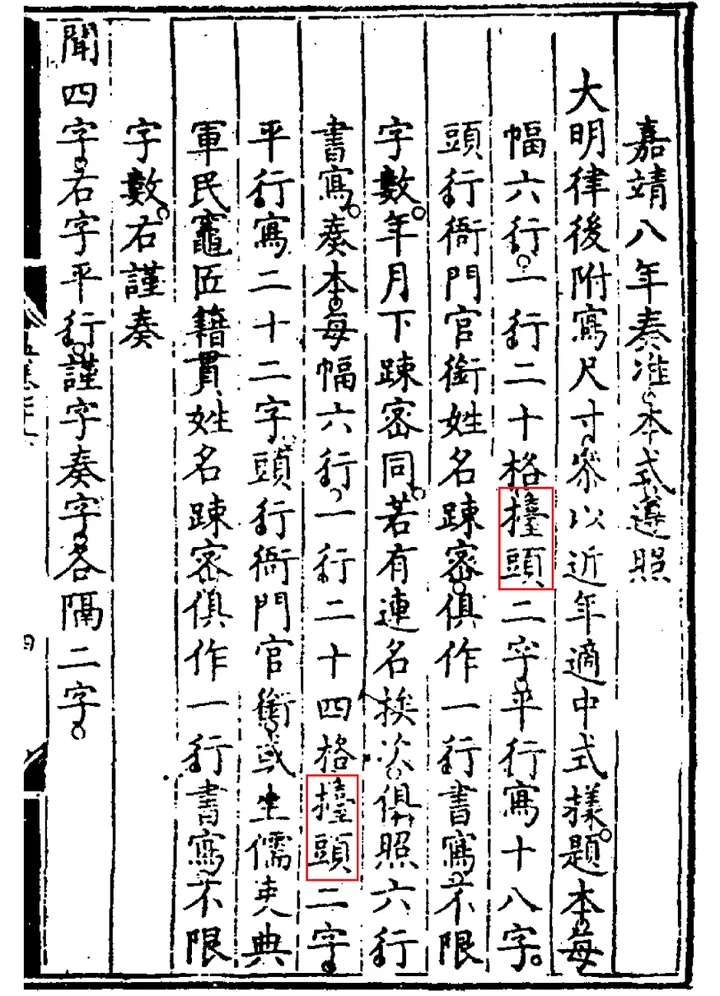 嘉靖八年奏准。本式遵照
大明律後附寫尺寸。叅以近年適中式㨾。題本。每
幅六行。一行二十格。擡頭二字。平行寫十八字。
頭行衙門官銜姓名踈密。俱作一行書寫。不限
字數。年月下踈密同。若有連名挨次。俱照六行
書寫。奏本。每幅六行。一行二十四格。擡頭二字。
平行寫二十二字。頭行衙門官銜。或生儒吏典
軍民竈匠籍貫姓名踈密俱作一行書寫。不限
字數。右謹奏
聞四字。右字平行。謹字奏字。各隔二字。